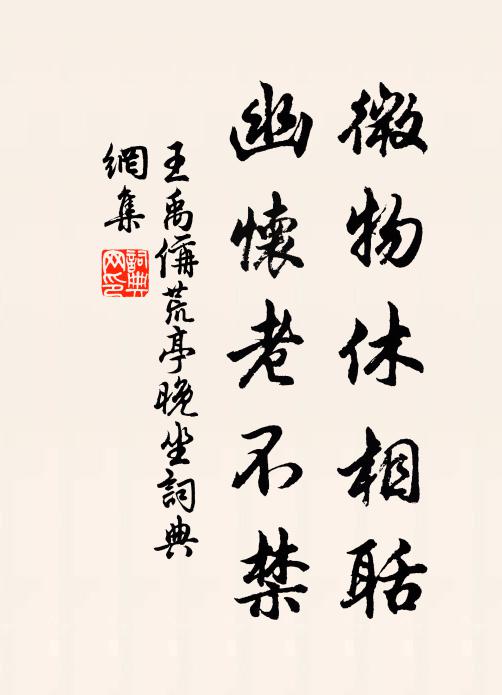 微物休相聒
幽懷老不禁
王禹偁荒亭晚坐詞典
網集
詞典
网印